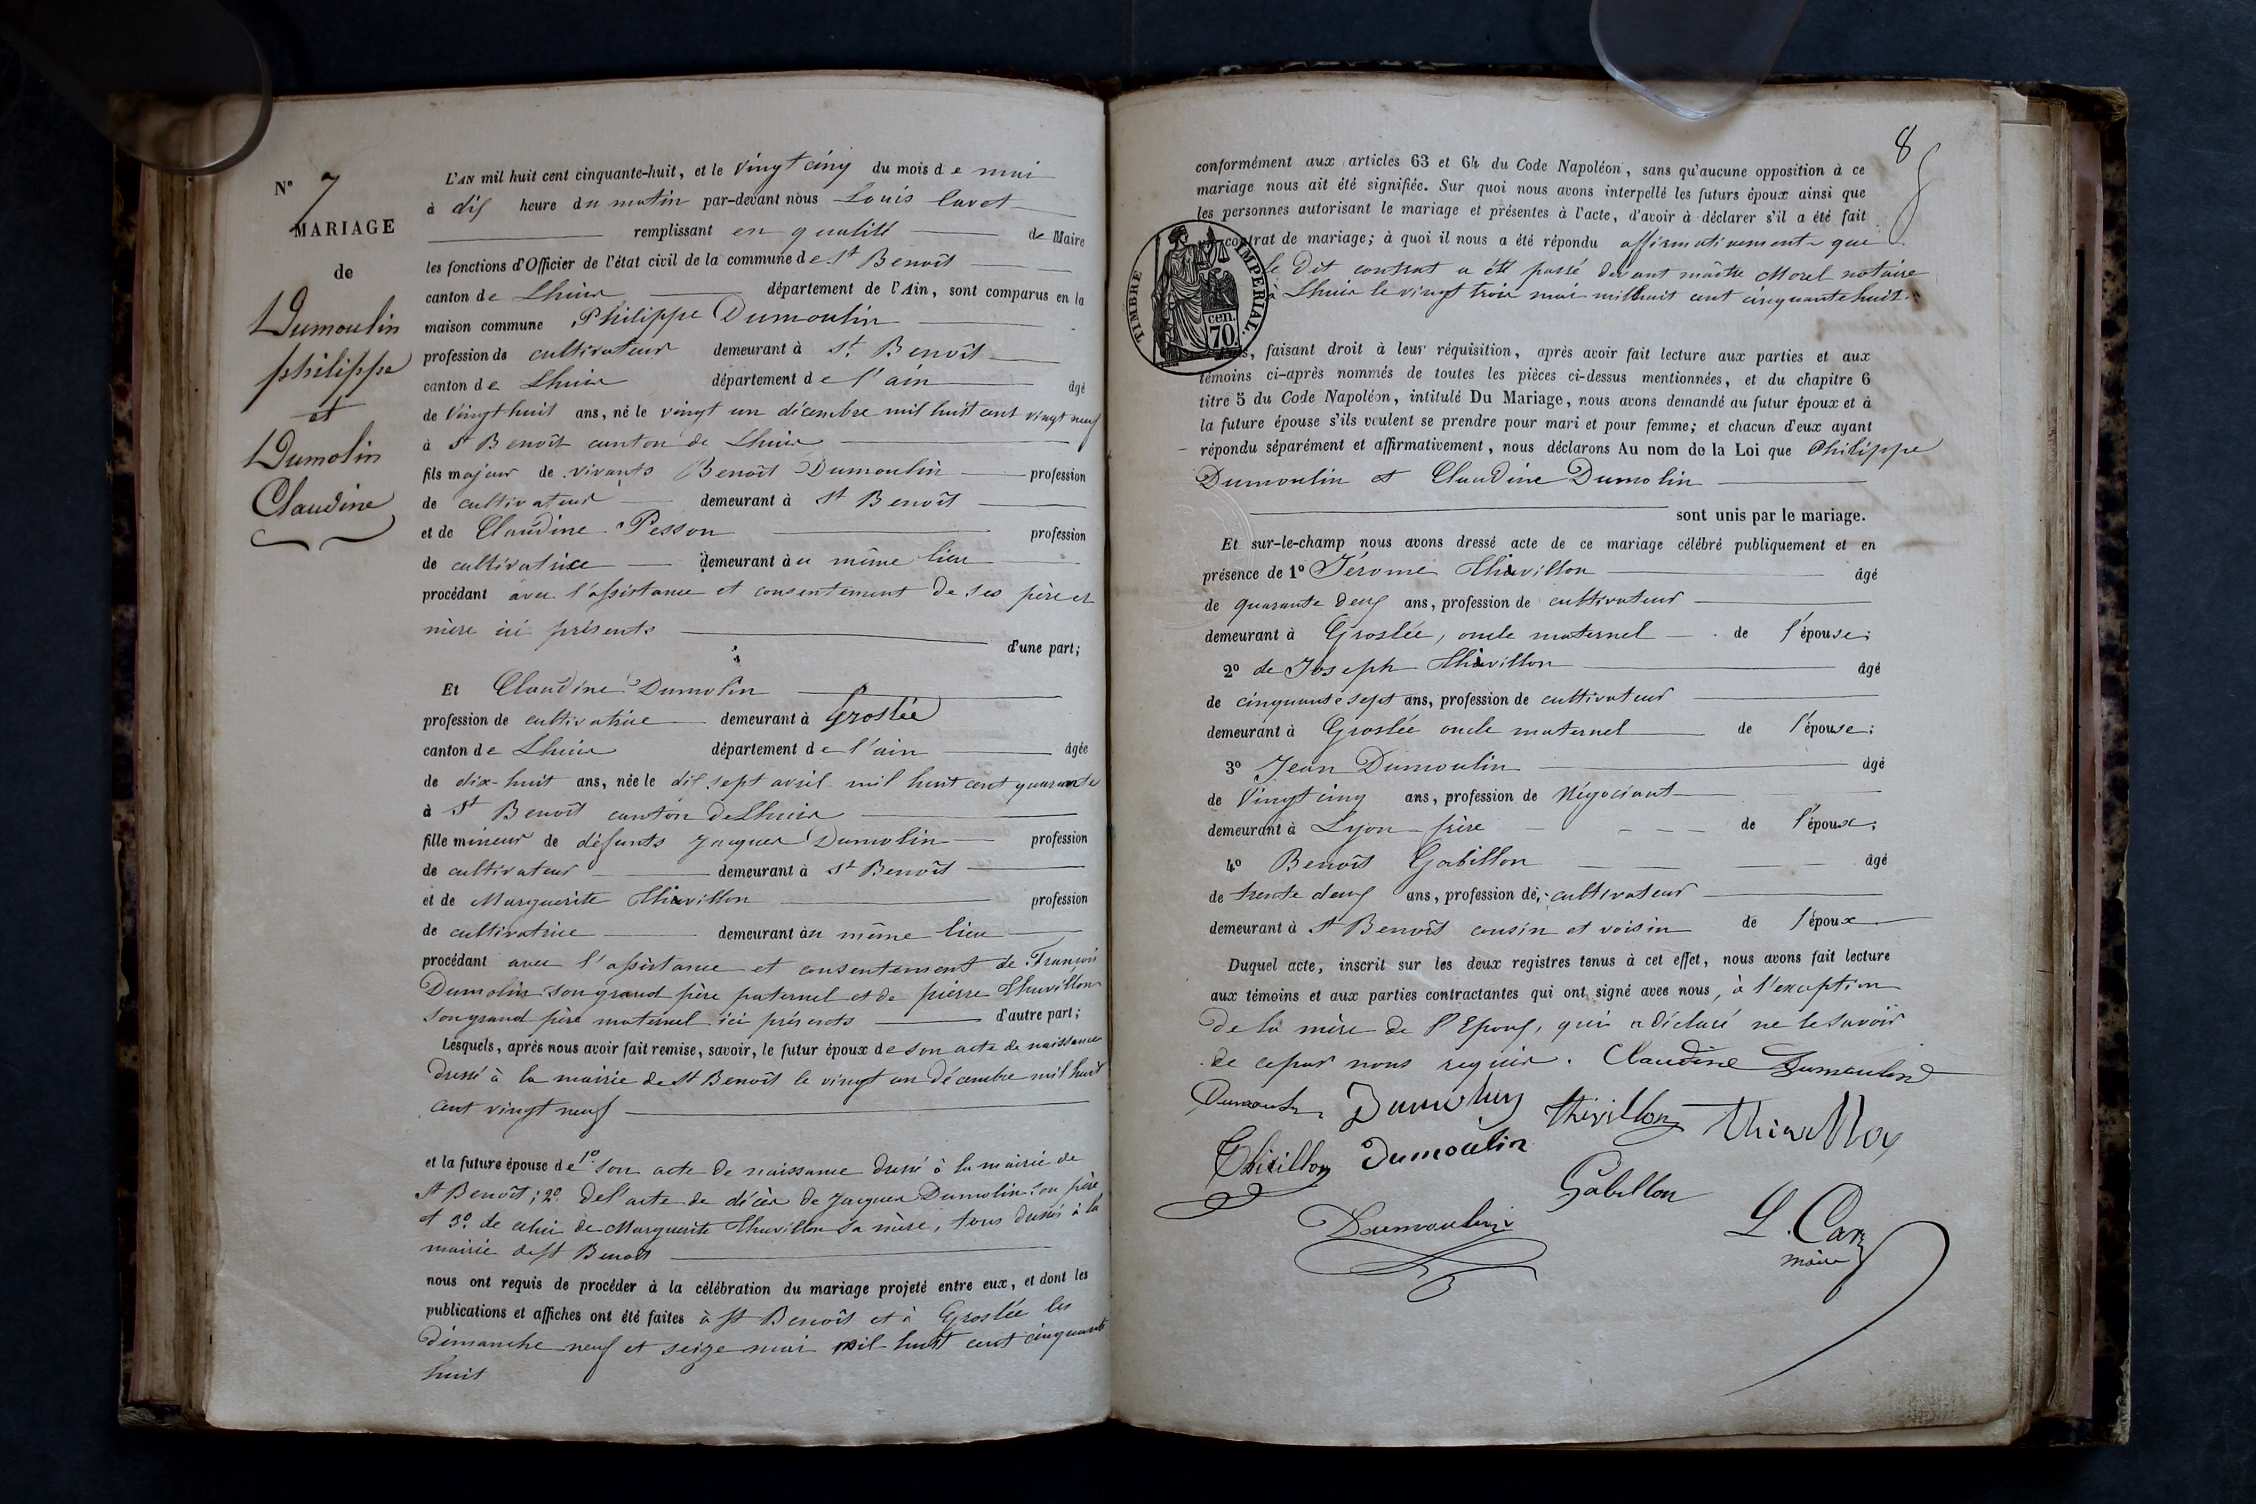 N° 7
MARIAGE
de
Dumoulin
philippe
et
Dumolin
Claudine
L'AN mil huit cent cinquante-huit, et le vingt cinq du mois de mai
à dix heure du matin par-devant nous Louis
remplissant en qualité de Maire
les fonctions d'Officier de l'état civil de la commune de St Benoît
canton de Lhuis département de l'Ain, sont comparus en la
maison commune Philippe Dumoulin
profession de cultivateur demeurant à St. Benoît
canton de Lhuis département de l'ain âgé
de vingt huit ans, né le vingt un décembre mil huit cent vingt neuf
à St Benoît canton de Lhuis
fils majeur de vivants Benoît Dumoulin profession
de cultivateur demeurant à St Benoît
et de Claudine Pesson profession
de cultivatrice demeurant au même lieu
procédant avec l'assistance et consentement de ses père et
mère ici présents
d'une part;
Et Claudine Dumolin
profession de cultivatrice demeurant à Groslée
canton de Lhuis département de l'ain âgée
de dix-huit ans, née le dix sept avril mil huit cent quarante
à St Benoît canton de Lhuis
fille mineur de défunts Jacques Dumolin profession
de cultivateur demeurant à St Benoît
et de Marguerite Thivillon profession
de cultivatrice demeurant au même lieu
procédant avec l'assistance et consentement de François
Dumolin son grand père paternel et de pierre Thivillon
son grand père maternel ici présents d'autre part;
Lesquels, après nous avoir fait remise, savoir, le futur époux de son acte de naissance
dressé à la mairie de St Benoît le vingt un décembre mil huit
cent vingt neuf
et la future épouse de 1° son acte de naissance dressé à la mairie de
St Benoît; 2° de l'acte de décès de Jacques Dumolin son père
et 3° de celui de Marguerite Thivillon sa mère, tous dressés à la
mairie de St Benoît
nous ont requis de procéder à la célébration du mariage projeté entre eux, et dont les
publications et affiches ont été faites à St Benoît et à Groslée les
dimanche neuf et seize mai mil huit cent cinquante
huit
8
conformément aux articles 63 et 64 du Code Napoléon, sans qu'aucune opposition à ce
mariage nous ait été signifiée. Sur quoi nous avons interpellé les futurs époux ainsi que
les personnes autorisant le mariage et présentes à l'acte, d'avoir à déclarer s'il a été fait
contrat de mariage; à quoi il nous a été répondu affirmativement que
le dit contrat a été passé devant maître Morel notaire
à Lhuis le vingt trois mai mil huit cent cinquante huit.
TIMBRE IMPÉRIAL.
70 cen.
faisant droit à leur réquisition, après avoir fait lecture aux parties et aux
témoins ci-après nommés de toutes les pièces ci-dessus mentionnées, et du chapitre 6
titre 5 du Code Napoléon, intitulé Du Mariage, nous avons demandé au futur époux et à
la future épouse s'ils veulent se prendre pour mari et pour femme; et chacun d'eux ayant
répondu séparément et affirmativement, nous déclarons Au nom de la Loi que Philippe
Dumoulin et Claudine Dumolin
sont unis par le mariage.
Et sur-le-champ nous avons dressé acte de ce mariage célébré publiquement et en
présence de 1° Jérome Thivillon âgé
de quarante deux ans, profession de cultivateur
demeurant à Groslée, oncle maternel de l'épouse;
2° de Joseph Thivillon âgé
de cinquante sept ans, profession de cultivateur
demeurant à Groslée oncle maternel de l'épouse;
3° Jean Dumoulin âgé
de vingt cinq ans, profession de Négociant
demeurant à Lyon frère de l'époux;
4° Benoît Gabillon âgé
de trente deux ans, profession de cultivateur
demeurant à St Benoît cousin et voisin de l'époux
Duquel acte, inscrit sur les deux registres tenus à cet effet, nous avons fait lecture
aux témoins et aux parties contractantes qui ont signé avec nous, à l'exception
de la mère de l'Epoux, qui a déclaré ne le savoir
de ce par nous requise. Claudine Dumoulin
Dumolin thivillon
Thivillon Dumoulin
Gabillon
Dumoulin
L. Car
maire